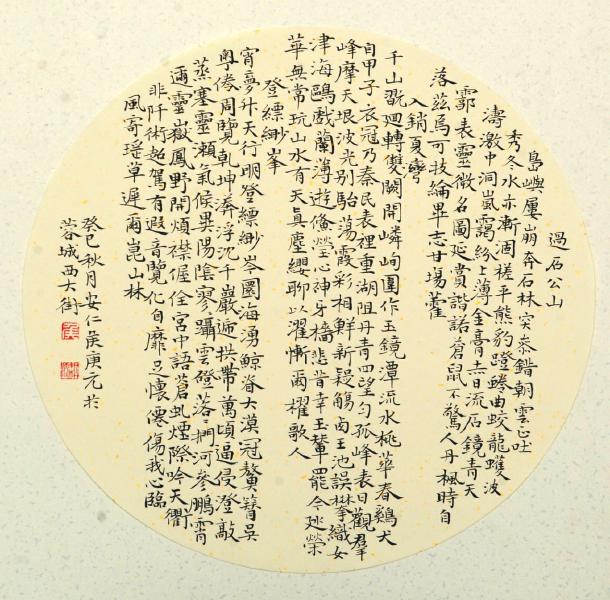 過石公山
島嶼屢崩奔石林突參錯朝雲正吐
秀冬水亦漸涸槎平熊豹蹬蜷曲蛟龍蠖波
濤激中洞嵐靄紛上薄金膏赤日流石鏡青天
霩表靈微名圖延賞諧諾蒼鼠不驚人丹楓時自
落茲焉可投綸畢志甘場藿
入銷夏灣
千山翫迴轉雙闕開嶙峋圍作玉鏡潭流水桃華春鷄犬
自甲子衣冠乃秦民表裡重湖阻丹青四望勻孤峰表日觀群
峰摩天垠波光別駘蕩霞彩相鮮新疑觴鹵王池誤攀織女
津海鷗戲蘭薄遊儵瑩心神牙檣悲昔幸玉輦罷今巡榮
華無常玩山水有天真塵纓聊以濯慚爾櫂歌人
登縹緲峯
宵夢升天行明登縹緲岑圜海湧鯨脊大漠冠鰲簪吳
粵倦周覽乾坤莽浮沉千巖遞拱帶萬頃逼侵澄敲
蒸塞靈瀨氣候異陽陰寥躡雲磴落落捫河參鵬霄
邇靈嶽鳳野開煩襟偓佺宮中語蒼虬煙際吟天衢
非阡術超駕有遐音覽化自靡足懷僊傷我心臨
風寄瑤草遲爾崑山林
癸巳秋月安仁侯庚元於
蓉城西大街